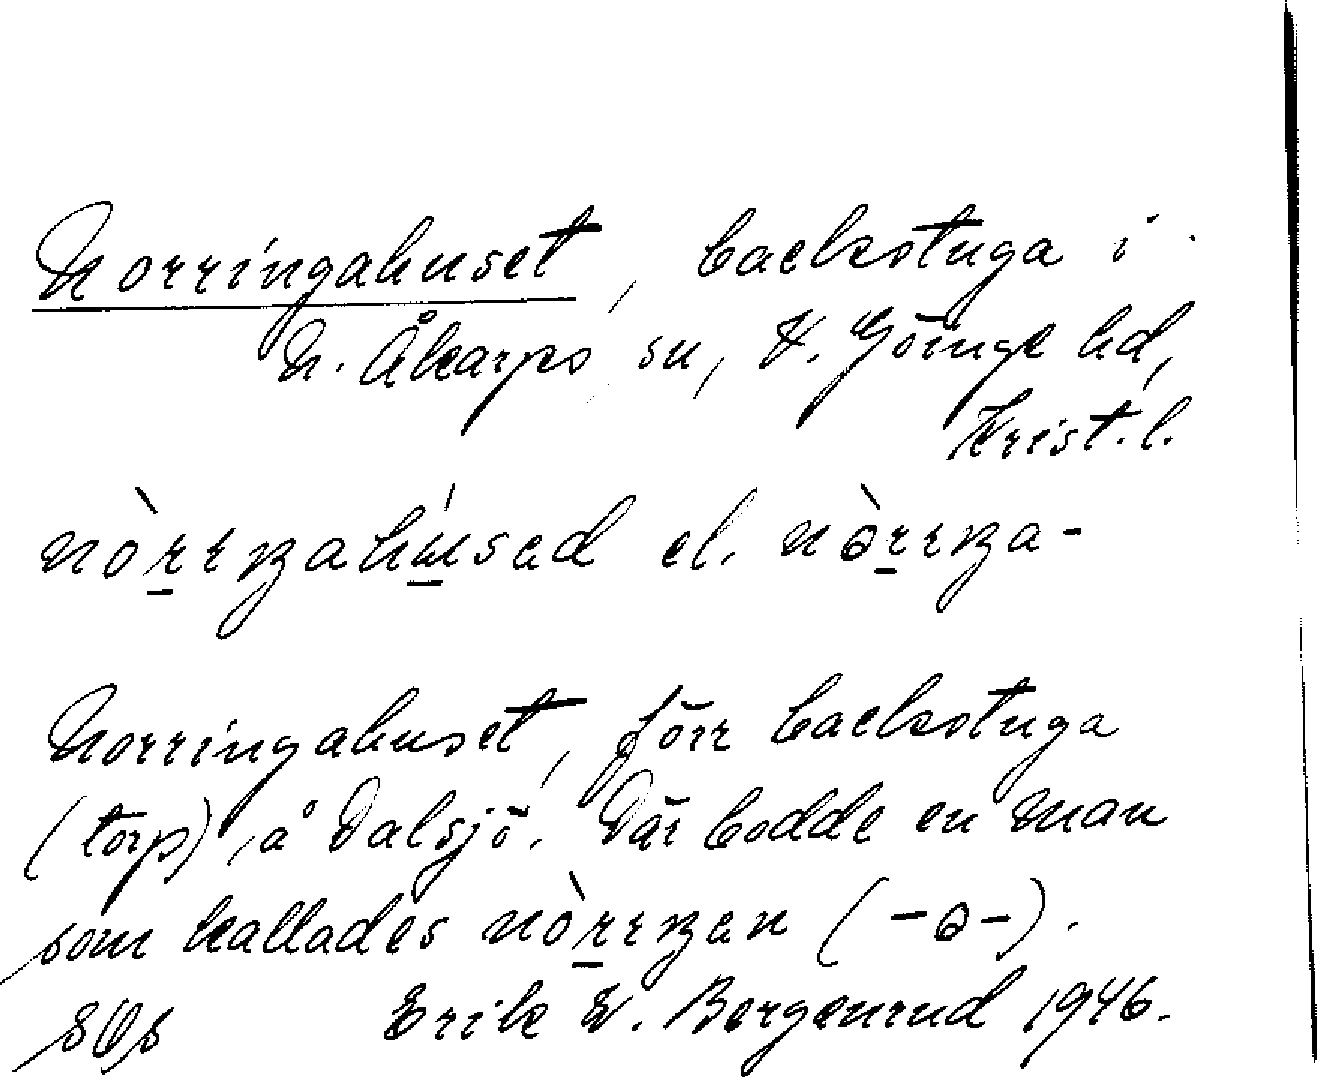 Norringahuset, backstuga i
N. Åkarps sn, V. Göinge hd,
Krist. l.
nòrrŋahúsəd el. nɵ̀rrŋa-
Norringahuset, förr backstuga
(torp), å Dalsjö. Där bodde en man
som kallades nòrrŋən (-ɵ-).
Erik W. Bergenrud 1946.